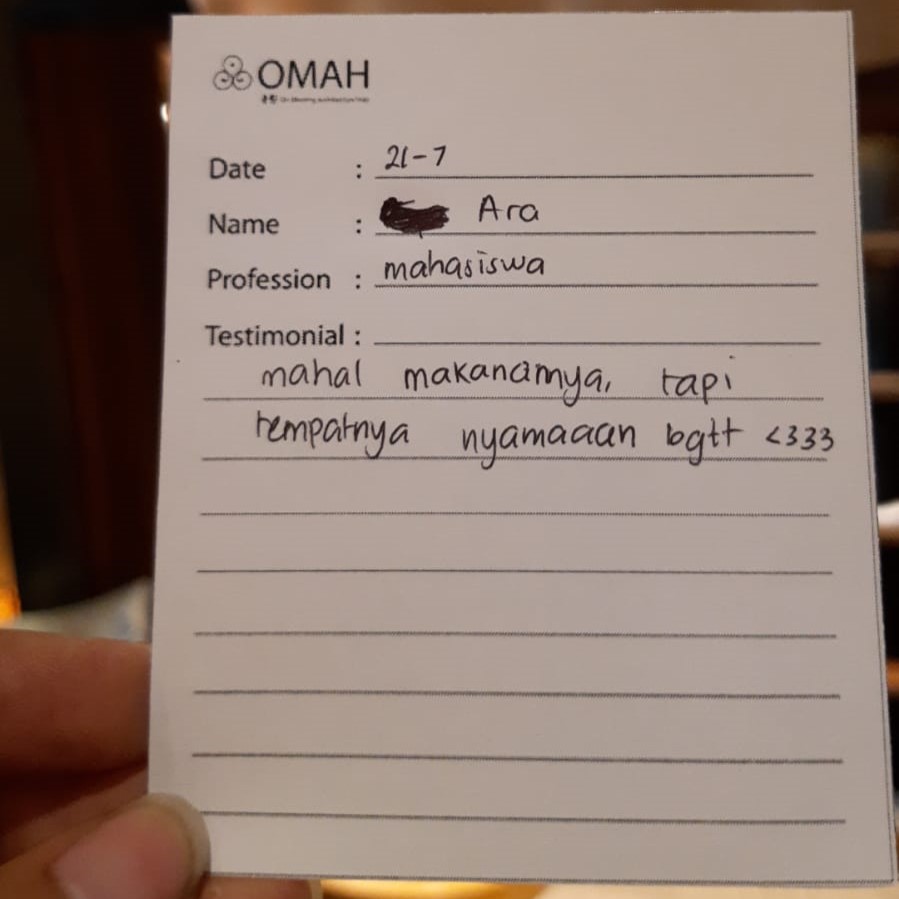 OMAH
Date : 21-7
Name : Ara
Profession : mahasiswa
Testimonial :
mahal makanannya, tapi
tempatnya nyamaaan bgtt <333